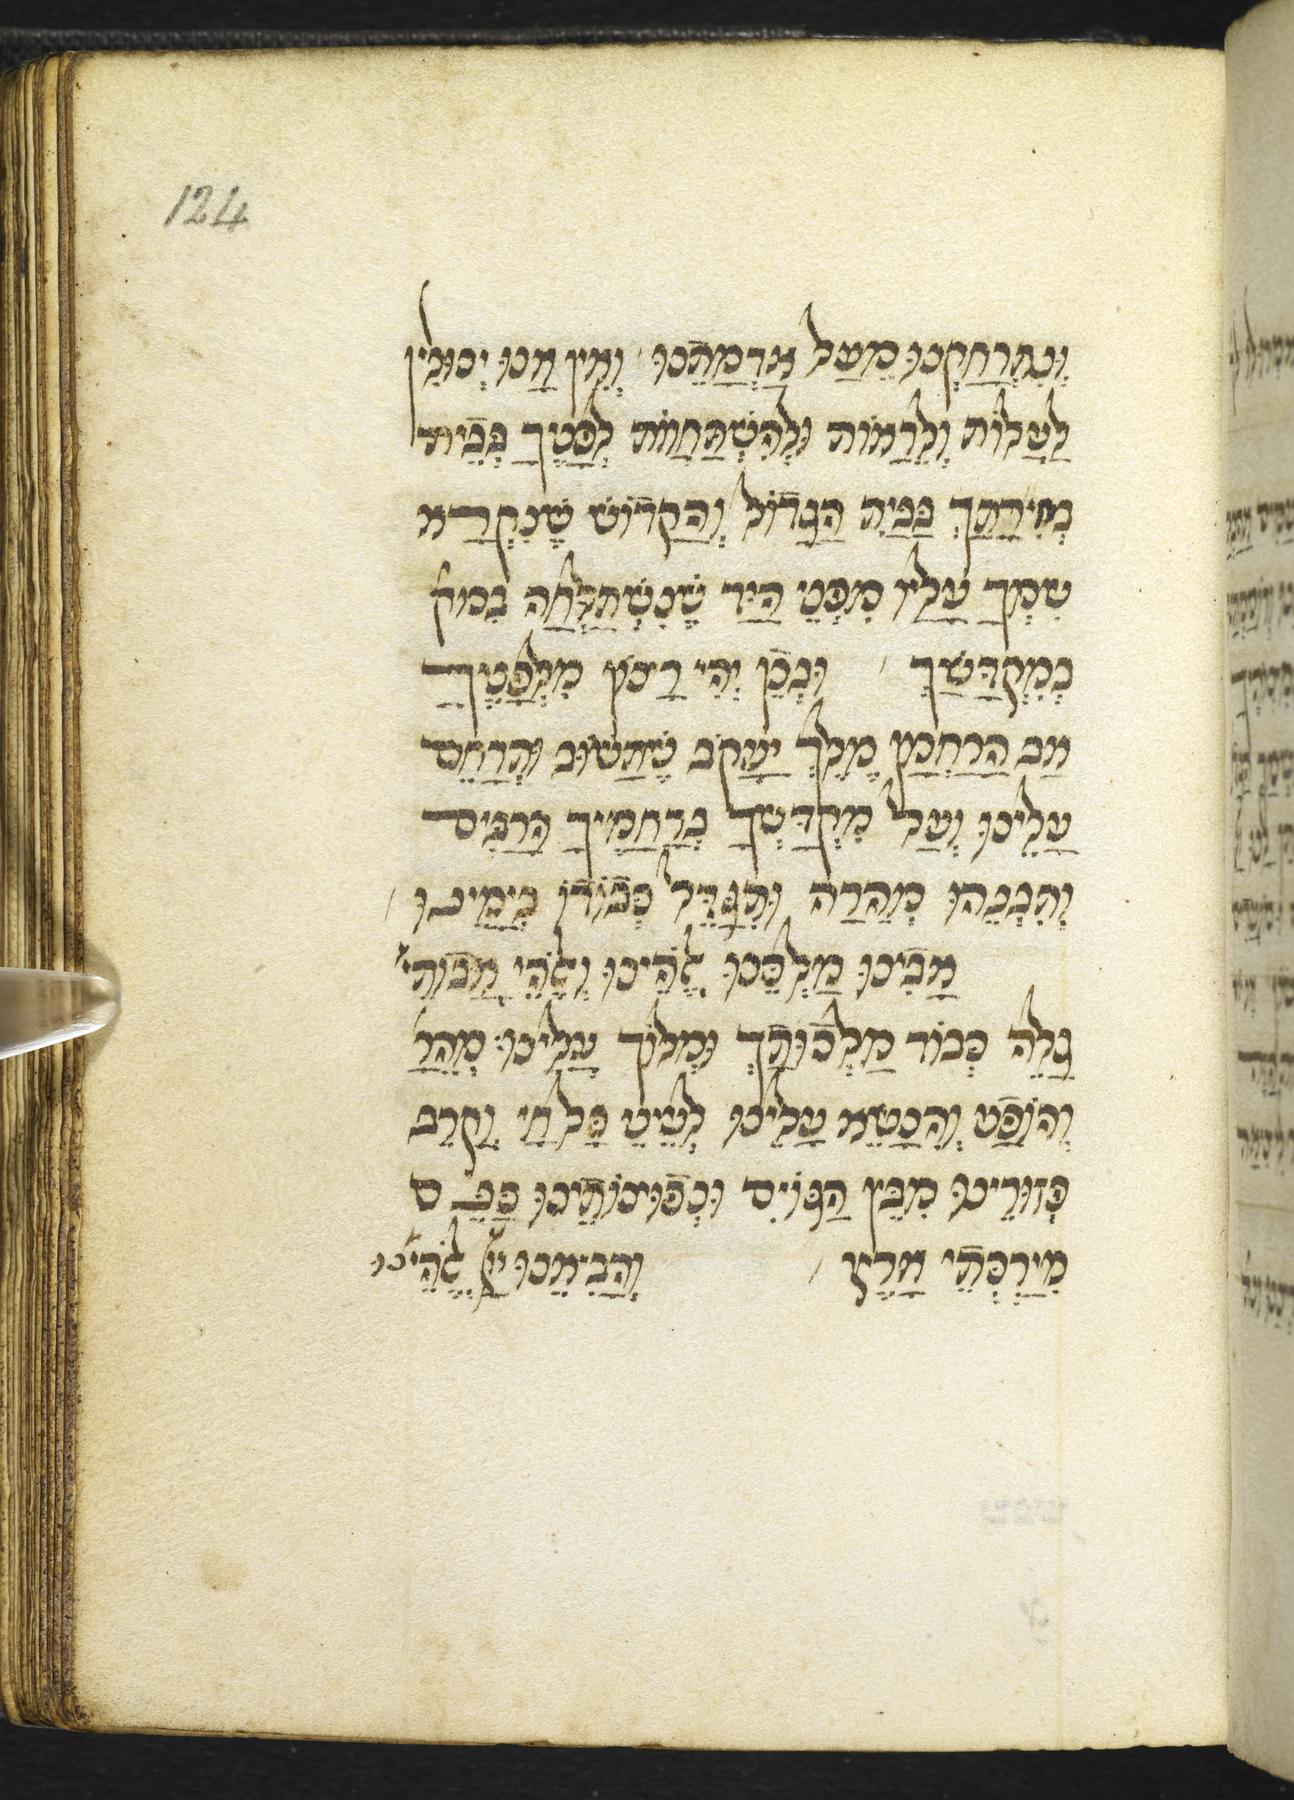 124
וְנִתְרַחַקְנוּ מֵעַל אַדְמָתֵנוּ וְאֵין אָנוּ יְכוּלִין
לַעֲלוֹת וְלֵרָאוֹת וּלְהִשְׁתַּחֲוֹת לְפָנֶיךָ בְּבֵית
בְּחִירָתָךְ בַּבַּיִת הַגָּדוֹל וְהַקָּדוֹשׁ שֶׁנִּקְרָא
שִׁמְךָ עָלָיו מִפְּנֵי הַיָּד שֶׁנִּשְׁתַּלְּחָה
בְּמִקְדָּשָׁךְ וּבְכֵן יְהִי רָצוֹן מִלְּפָנֶיךָ
אַב הָרַחְמָן מֶלֶךְ יַעֲקֹב שֶׁתָּשׁוּב וּתְרַחֵם
עָלֵינוּ וְעַל מִקְדָּשְׁךָ בְּרַחֲמֶיךָ הָרַבִּים
וְתִבְנֵהוּ מְהֵרָה וּתְגַדֵּל כְּבוֹדוֹ בְּיָמֵינוּ
אָבִינוּ מַלְכֵּנוּ אֱלֹהֵינוּ וֵאלֹהֵי אֲבוֹתֵי
גַּלֵּה כְּבוֹד מַלְכוּתָךְ וּמְלוֹךְ עָלֵינוּ מְהֵרָ
וְהוֹפַע וְהִנָּשֵׂא עָלֵינוּ לְעֵינֵי כָּל חַי וְקָרֵב
פְּזוּרֵינוּ מִבֵּין הַגּוֹיִם וּנְפוּצוֹתֵינוּ כַּנֵּס
מִיַּרְכְּתֵי אָרֶץ וַהֲבִיאֵנוּ יְיָ אֱלֹהֵינוּ